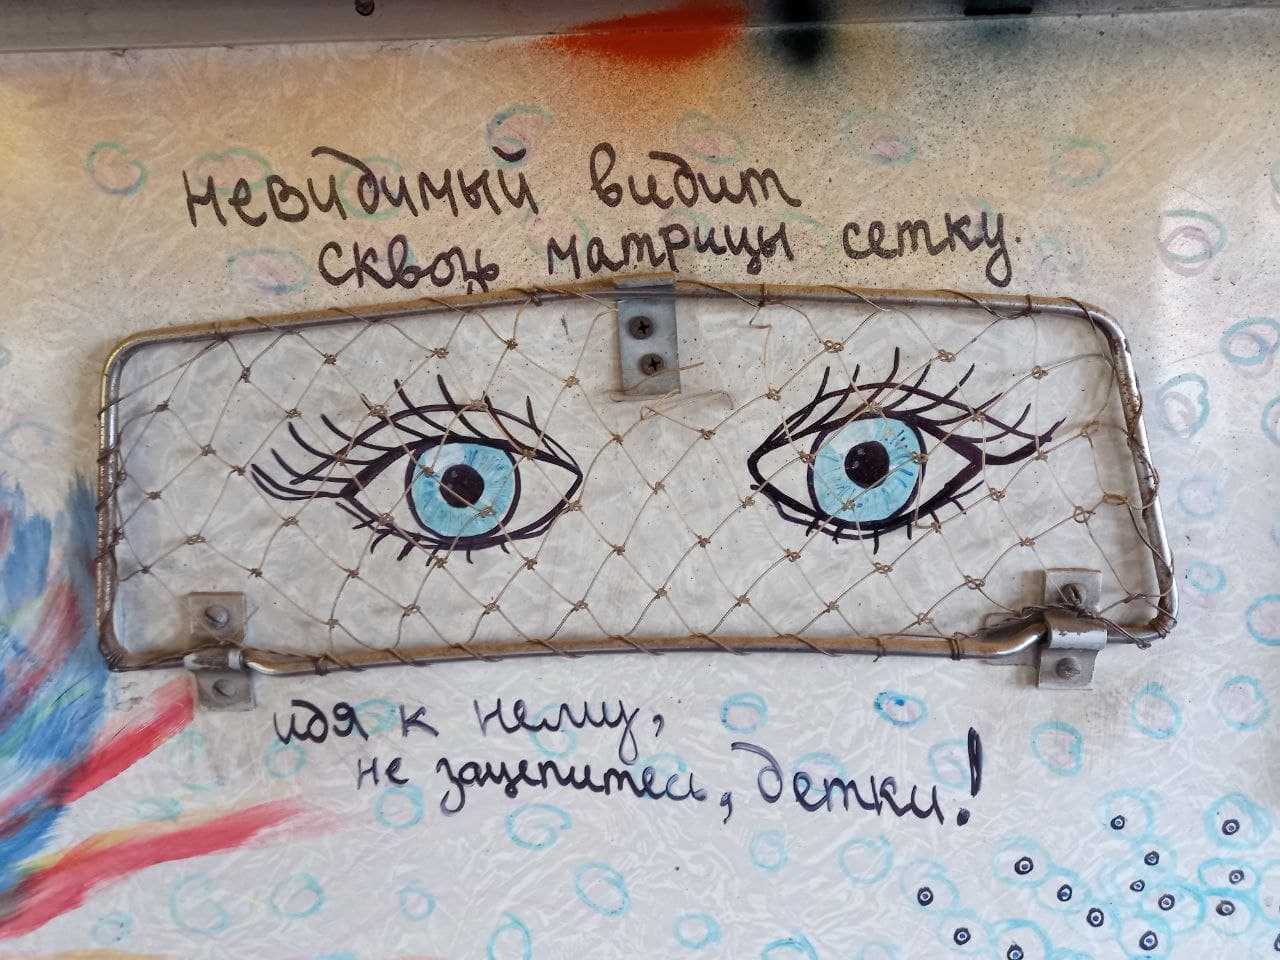 невидимый видит
сквозь матрицы сетку.
идя к нему,
не зацепитесь, детки!